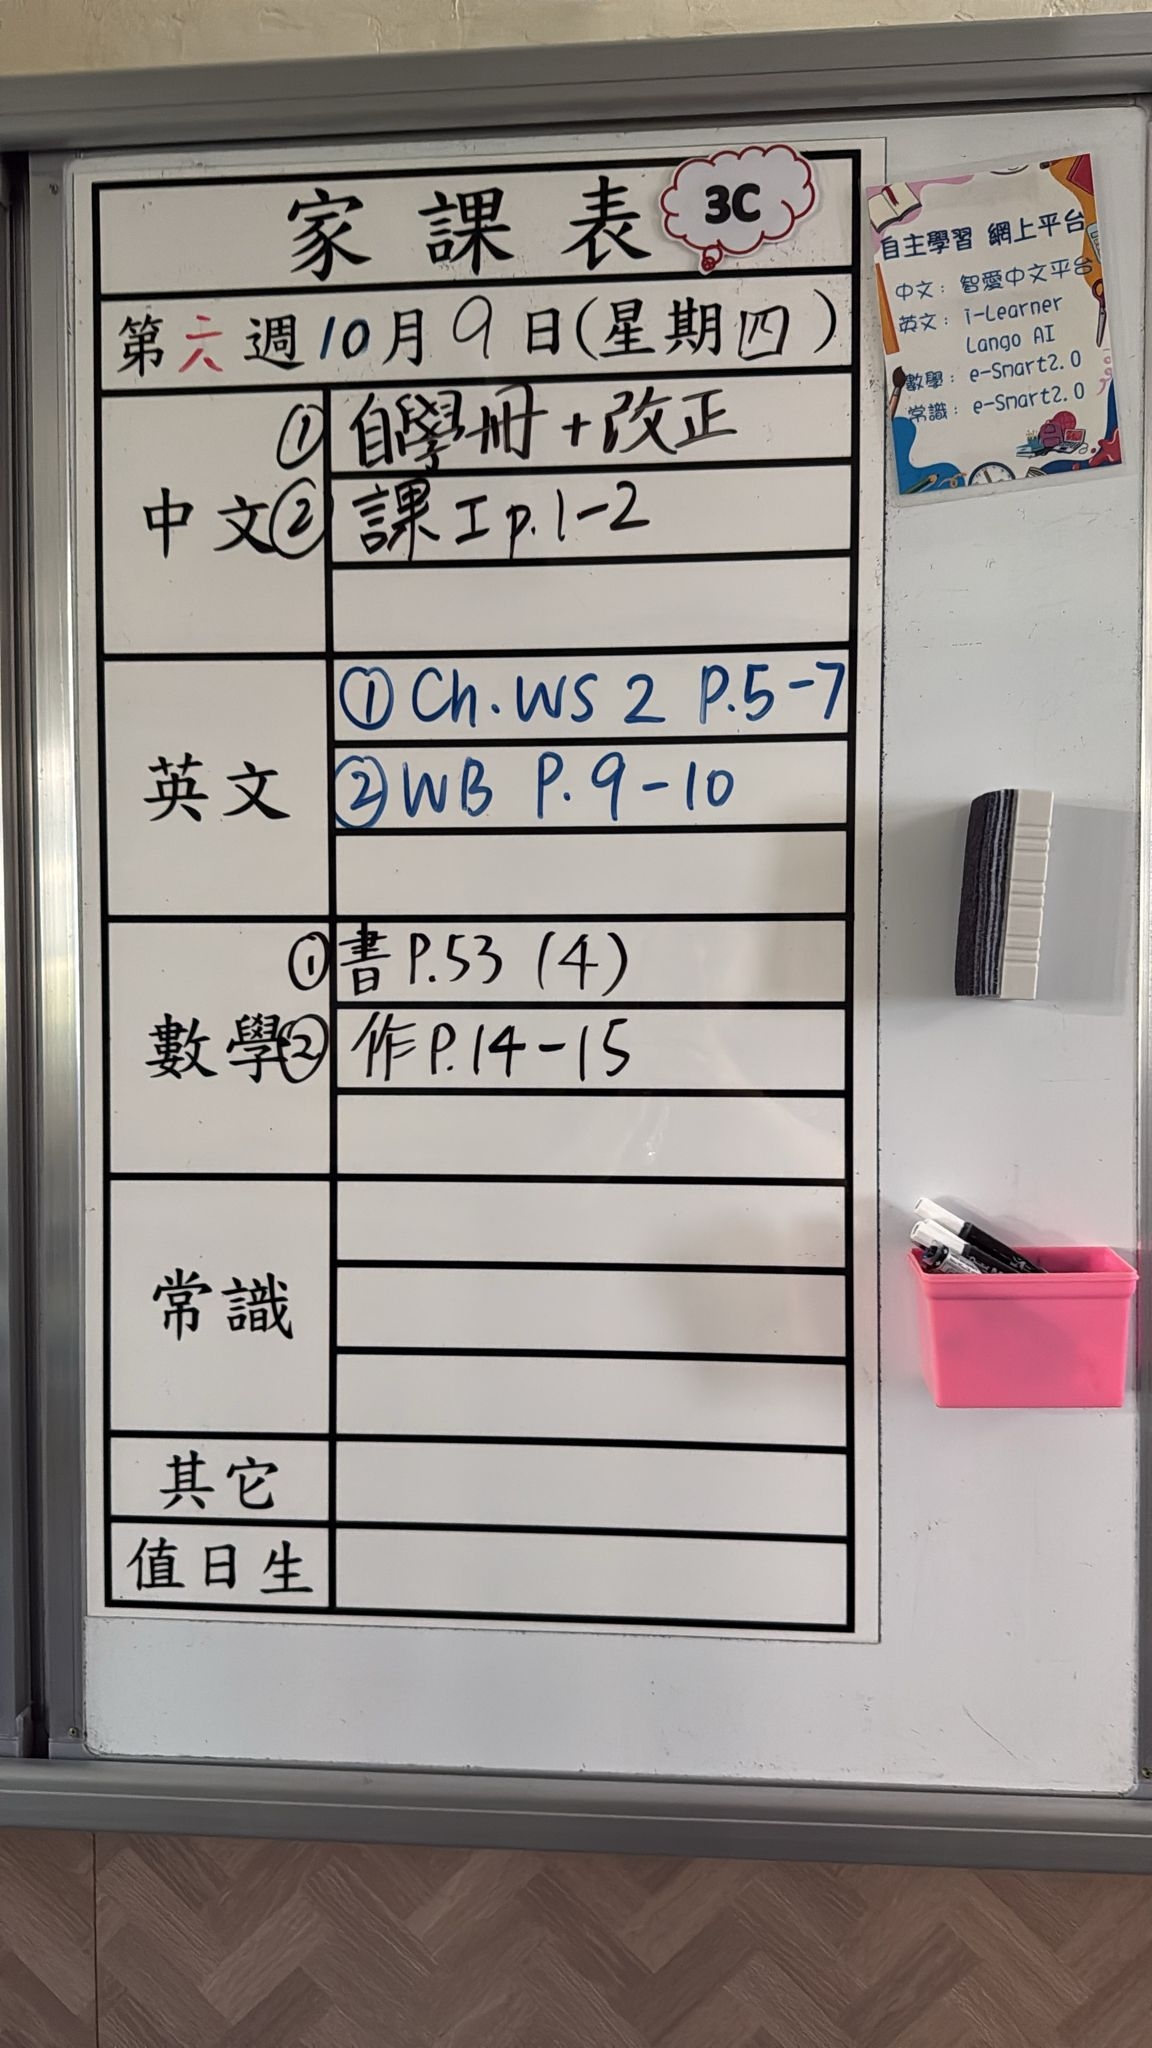 家課表 3C
第六週10月9日(星期四)
中文
① 自學冊+改正
② 課工p.1-2
英文
① Ch.WS 2 P.5-7
② WB P.9-10
數學
① 書P.53 (4)
② 作P.14-15
常識
其它
值日生
自主學習 網上平台
中文：智愛中文平台
英文：i-Learner
Lango AI
數學：e-Smart2.0
常識：e-Smart2.0